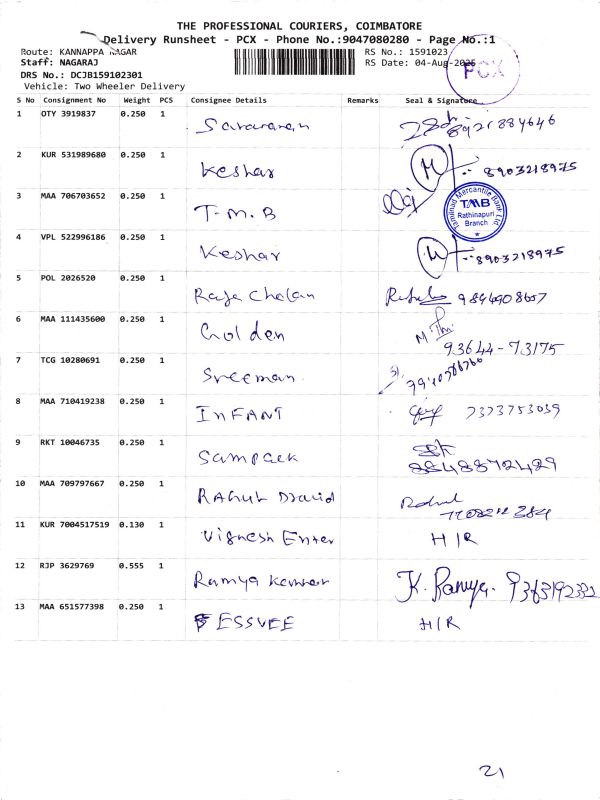 THE PROFESSIONAL COURIERS, COIMBATORE
Delivery Runsheet - PCX - Phone No.:9047080280 - Page No.:1
Route: KANNAPPA NAGAR RS No.: 1591023
Staff: NAGARAJ RS Date: 04-Aug-2025
PCX
DRS No.: DCJB159102301
Vehicle: Two Wheeler Delivery
S No Consignment No Weight PCS Consignee Details Remarks Seal & Signature
1 OTY 3919837 0.250 1 Saravanan 8921884646
2 KUR 531989680 0.250 1 Keshar 8903218975
3 MAA 706703652 0.250 1 T.M.B
Tamilnad Mercantile Bank Ltd
TMB
Rathinapuri
Branch
4 VPL 522996186 0.250 1 Keshar 8903218975
5 POL 2026520 0.250 1 Raja Cholan 9894908607
6 MAA 111435600 0.250 1 Golden 93644-73175
7 TCG 10280691 0.250 1 Sreeman
8 MAA 710419238 0.250 1 INFANT 7373753039
9 RKT 10046735 0.250 1 Sampack 8848872429
10 MAA 709797667 0.250 1 Rahul Dravid Rahul
11 KUR 7004517519 0.130 1 Vignesh Enter H/R
12 RJP 3629769 0.555 1 Ramya Kumar K. Ramya.
13 MAA 651577398 0.250 1 ESSVEE H/R
21